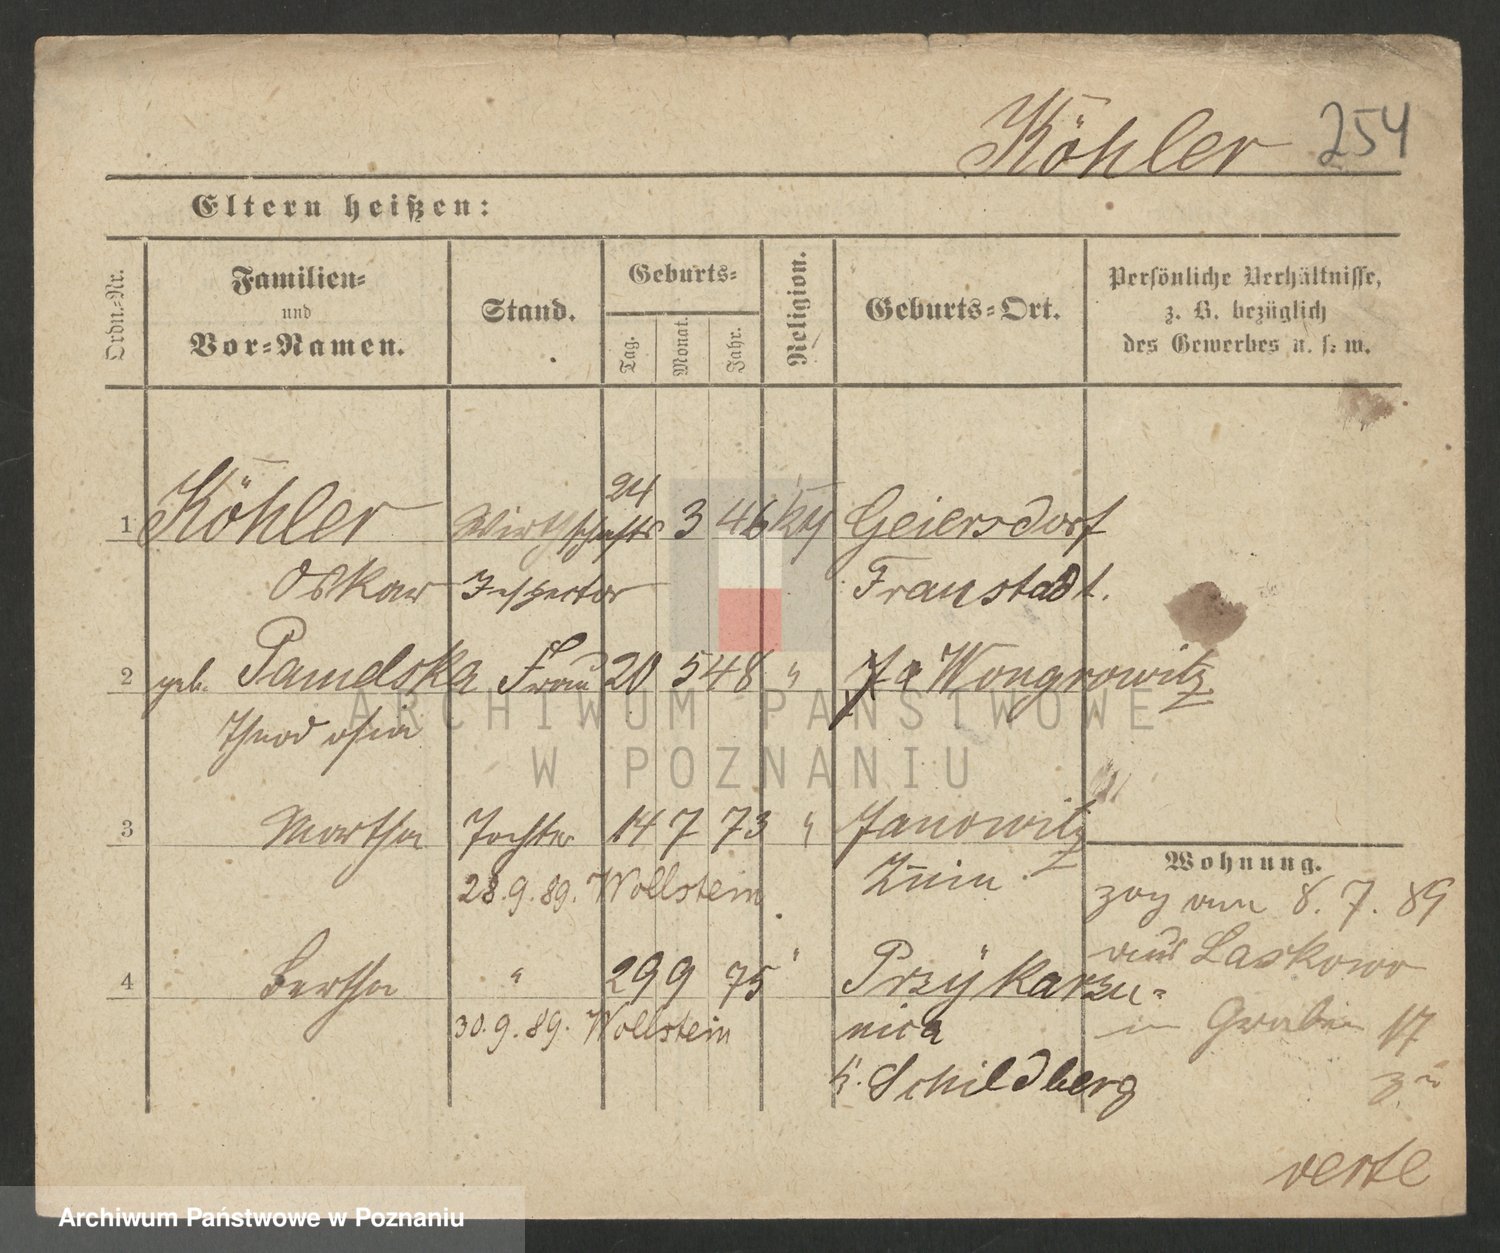 Köhler 254
Eltern heißen:
Ordn.-Nr.
Familien-
und
Vor-Namen.
Stand.
Geburts-
Tag.
Monat.
Jahr.
Religion.
Geburts-Ort.
Persönliche Verhältnisse,
z. B. bezüglich
des Gewerbes u. s. w.
1 Köhler Wirthschafts 24 3 46 Geiersdorf
Oskar Inspector Fraustadt.
2 geb. Frau 20 5 48 " Wongrowitz
3 Martha Tochter 14 7 73 " Janowitz
28. 9. 89. Wollstein Znin
4 Bertha " 29 9 75 " Przykarzu-
30. 9. 89. Wollstein nica
k. Schildberg
Wohnung.
zog am 8. 7. 89
aus Laskowo
in Graben 17
zu
verte
ARCHIWUM PAŃSTWOWE
W POZNANIU
Archiwum Państwowe w Poznaniu